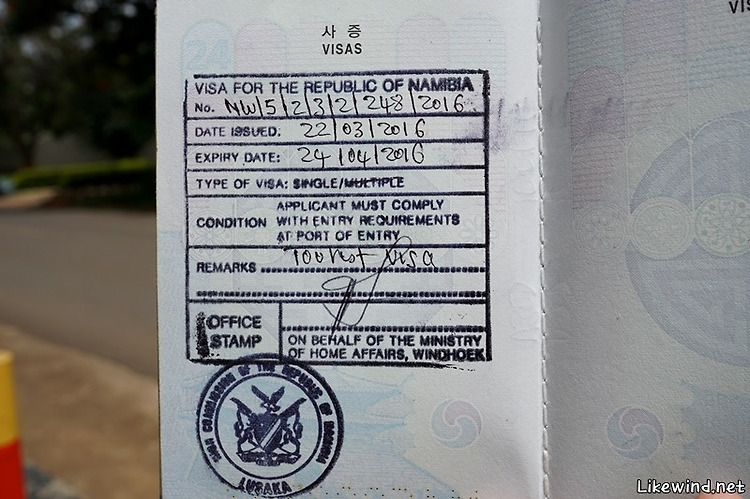 사 증
VISAS
VIS
VISA FOR THE REPUBLIC OF NAMIBIA
No. NW/5/2/3/2/248/2016
DATE ISSUED: 22/03/2016
EXPIRY DATE: 24/04/2016
TYPE OF VISA: SINGLE/MULTIPLE
CONDITION APPLICANT MUST COMPLY
WITH ENTRY REQUIREMENTS
AT PORT OF ENTRY
REMARKS Tourist Visa
OFFICE
STAMP
ON BEHALF OF THE MINISTRY
OF HOME AFFAIRS, WINDHOEK
HIGH COMMISSION OF THE REPUBLIC OF NAMIBIA
LUSAKA
Likewind.net